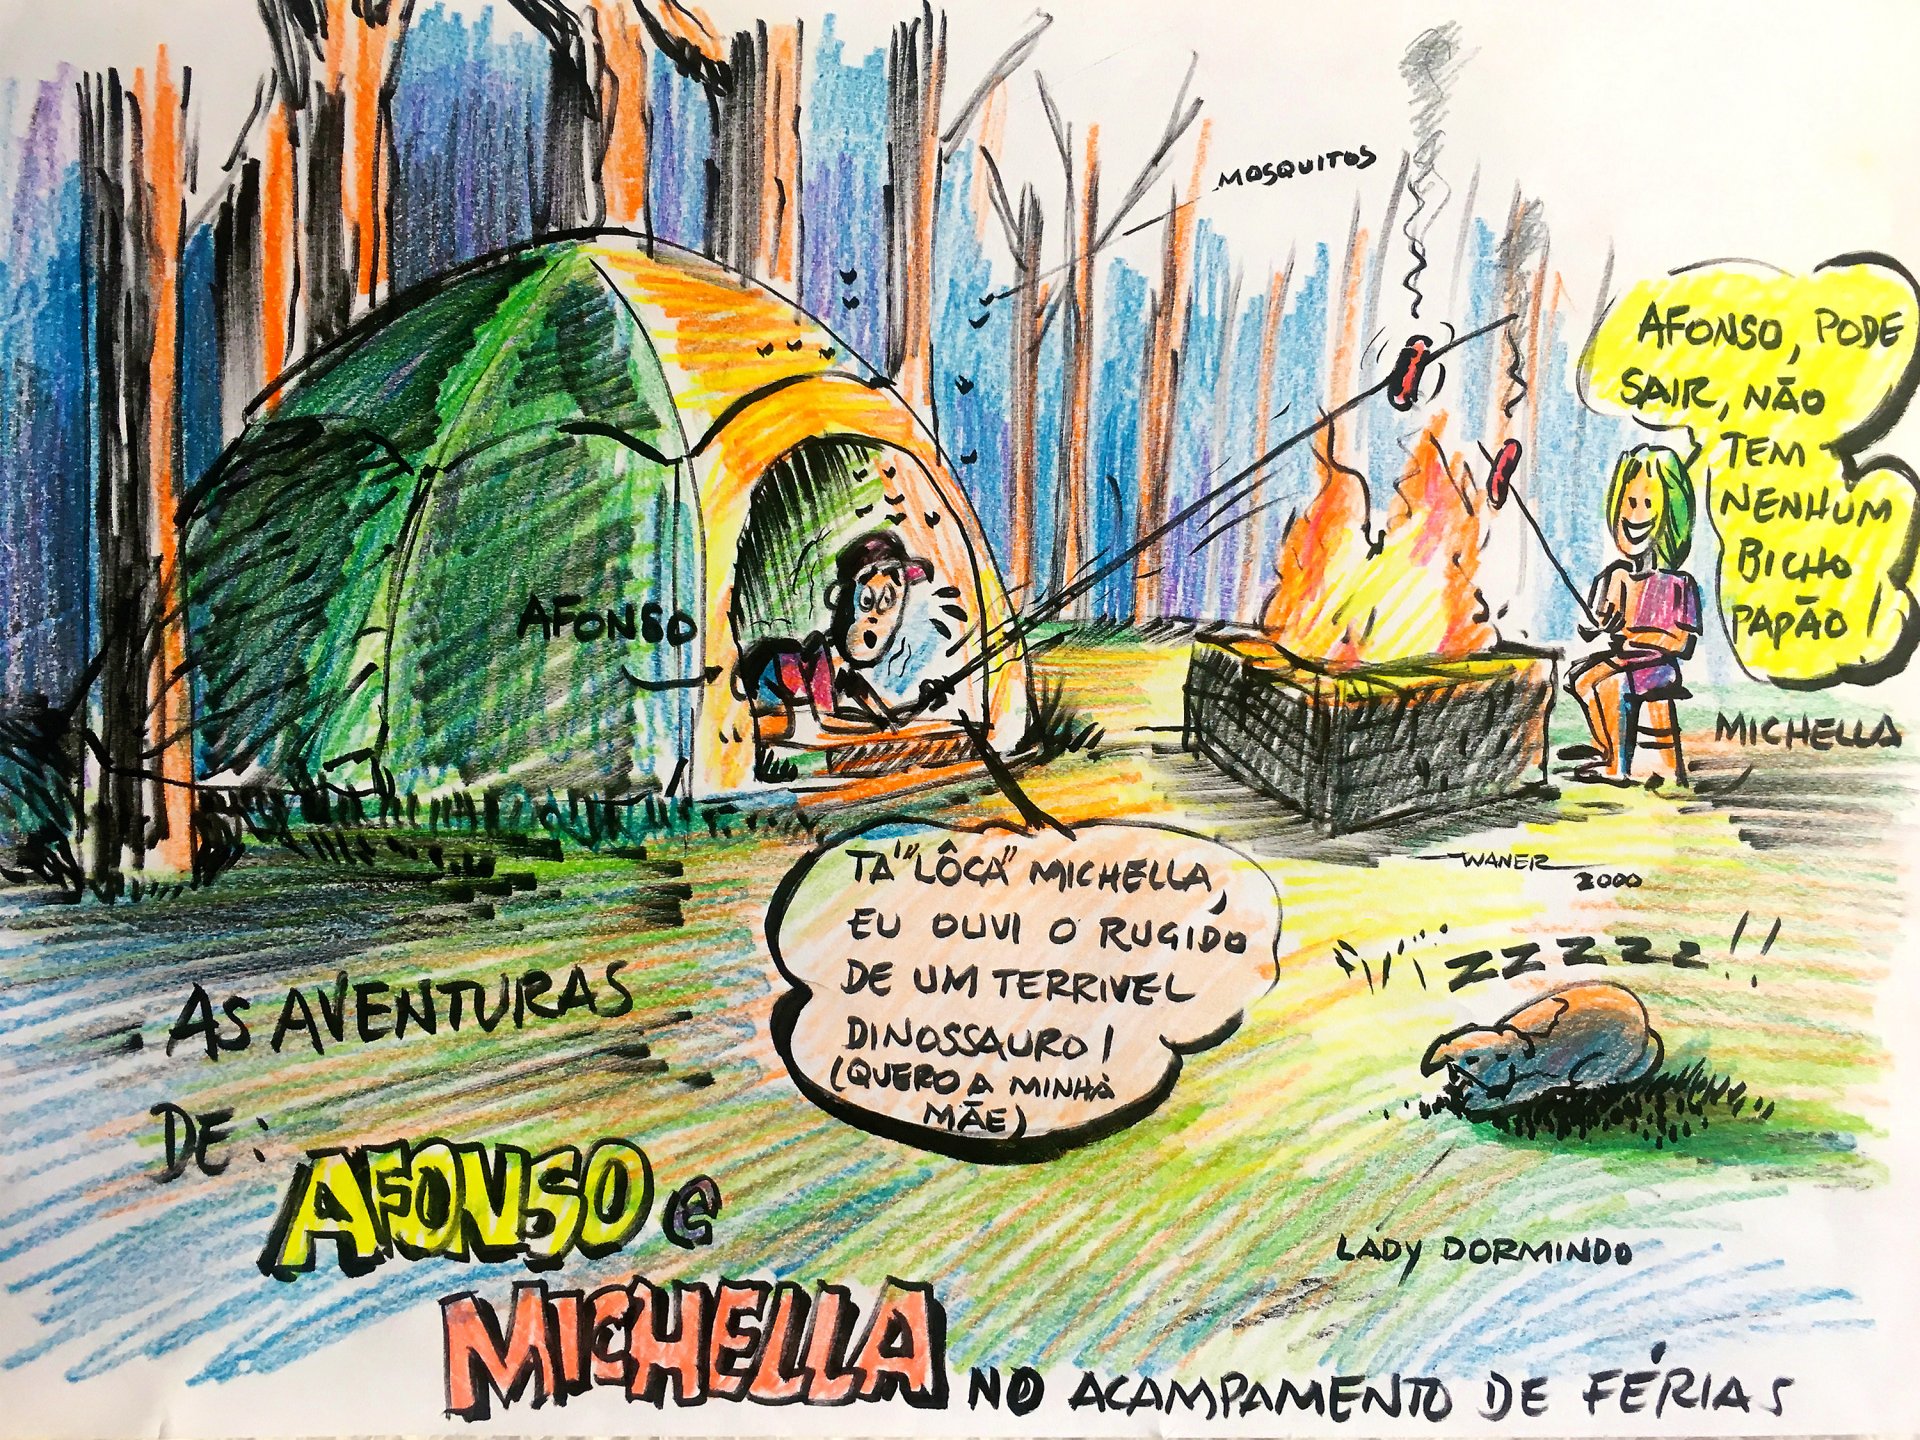 MOSQUITOS
AFONSO, PODE
SAIR, NÃO
TEM
NENHUM
BICHO
PAPÃO!
AFONSO
MICHELLA
TA' "LÔCA" MICHELLA,
EU OUVI O RUGIDO
DE UM TERRIVEL
DINOSSAURO!
(QUERO A MINHA
MÃE)
WANER
2000
ZZZZZZ!!
AS AVENTURAS
DE:
AFONSO e
MICHELLA NO ACAMPAMENTO DE FÉRIAS
LADY DORMINDO